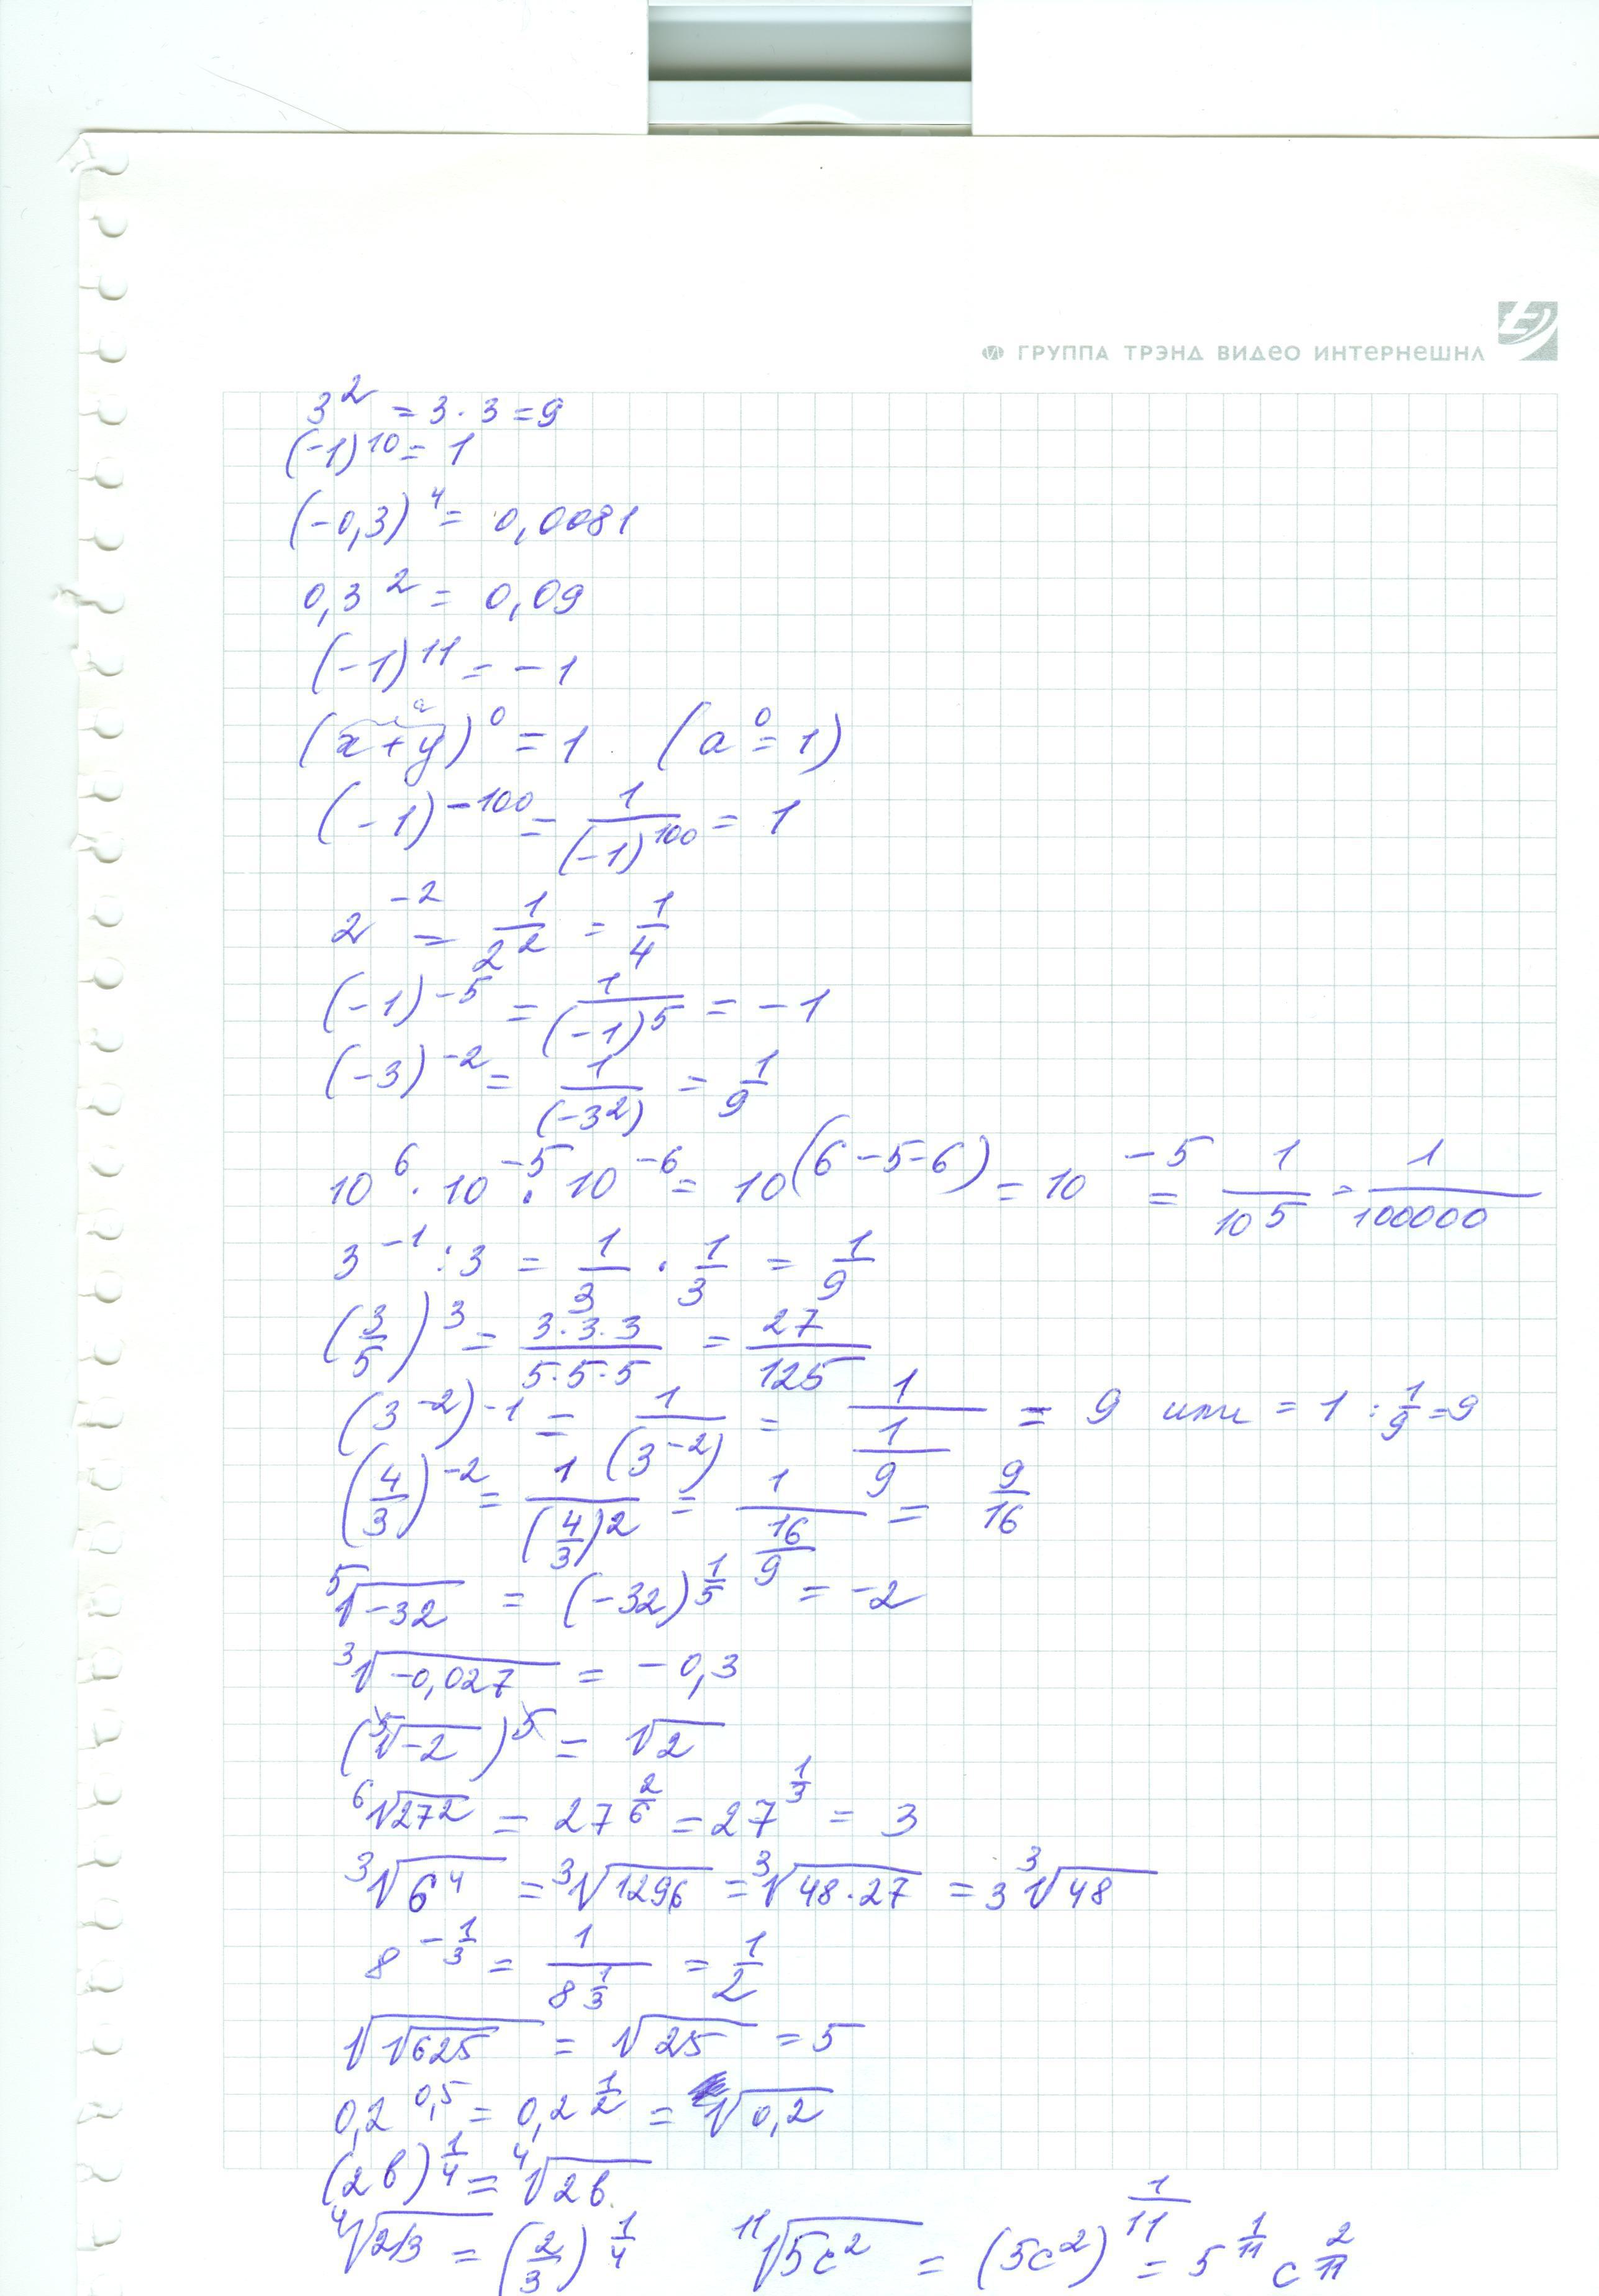 ГРУППА ТРЭНД ВИДЕО ИНТЕРНЕШНЛ
3² = 3·3 = 9
(-1)^10 = 1
(-0,3)^4 = 0,0081
0,3² = 0,09
(-1)^11 = -1
a
(x+y)^0 = 1 (a^0 = 1)
(-1)^-100 = 1/(-1)^100 = 1
2^-2 = 1/2² = 1/4
(-1)^-5 = 1/(-1)^5 = -1
(-3)^-2 = 1/(-3²) = 1/9
10^6 · 10^-5 · 10^-6 = 10^(6-5-6) = 10^-5 = 1/10^5 = 1/100000
3^-1 : 3 = 1/3 · 1/3 = 1/9
(3/5)^3 = 3·3·3/5·5·5 = 27/125
(3^-2)^-1 = 1/(3^-2) = 1/(1/9) = 9 или = 1 : 1/9 = 9
(4/3)^-2 = 1/(4/3)^2 = 1/(16/9) = 9/16
⁵√-32 = (-32)^1/5 = -2
³√-0,027 = -0,3
(⁵√-2)^5 = √2
⁶√27² = 27^2/6 = 27^1/3 = 3
³√6^4 = ³√1296 = ³√48·27 = 3 ³√48
8^-1/3 = 1/8^1/3 = 1/2
√√625 = √25 = 5
0,2^0,5 = 0,2^1/2 = √0,2
(2в)^1/4 = ⁴√2в
⁴√2/3 = (2/3)^1/4 ¹¹√5c² = (5c²)^1/11 = 5^1/11 c^2/11